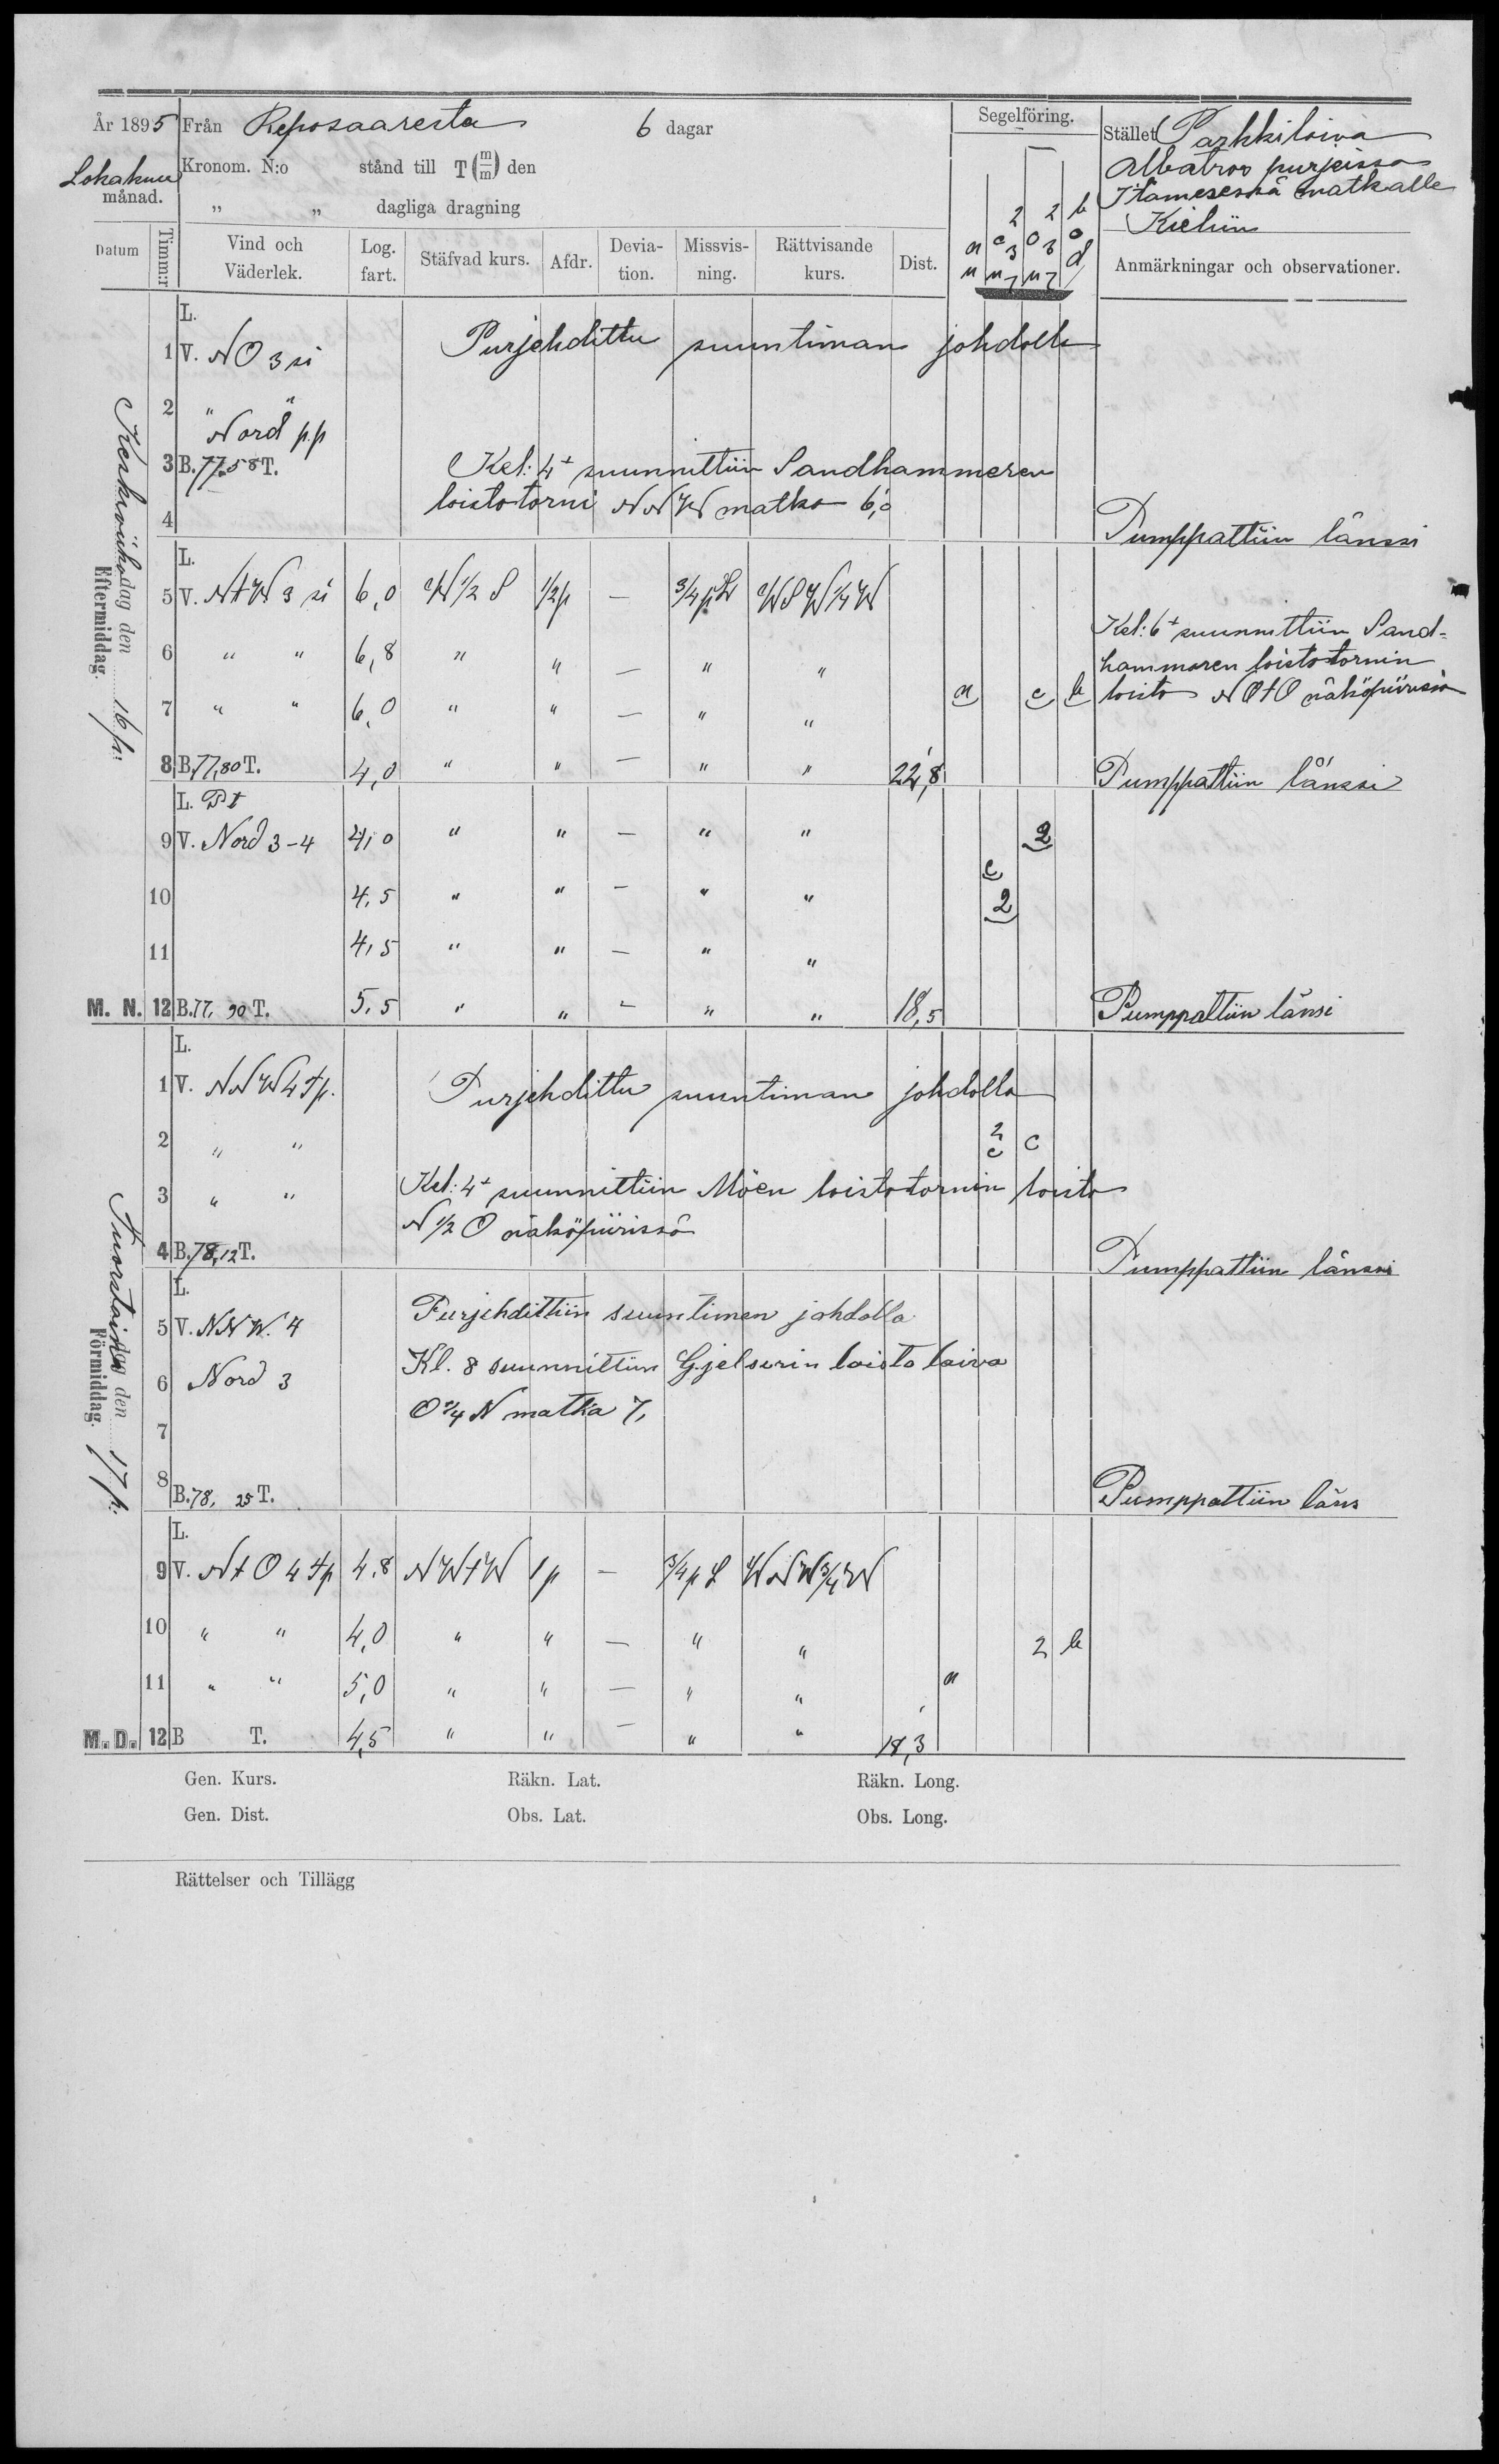 År 1895 Från Reposaaresta 6 dagar Segelföring. Stället Parkkilaiva
Albatros purjeissa
Lokakuu månad. Kronom. N:o stånd till T (m/m) den
Itameressä matkalle
„ „ dagliga dragning
Kieliin
Datum Timm:r Vind och Väderlek. Log. fart. Stäfvad kurs. Afdr. Devia-tion. Missvis-ning. Rättvisande kurs. Dist. Anmärkningar och observationer.
Keskviikko dag den 16 p: Eftermiddag.
L.
1 V. NO 3 si Purjehdittu suuntiman johdolla
2 " "
Nord p.p
3 B. 77.58 T. Kel: 4+ suunnittiin Sandhammeren
4 loistotorni NNW matka 6,0 Pumppattiin länssi
L.
5 V. NtW 3 si 6,0 W 1/2 S 1/2 p — 3/4 p W S W 1/4 W
Kel: 6+ suunnittiin Sand-
6 " " 6,8 " " — " "
hammaren loistotornin
7 " " 6,0 " " — " " a c b loisto NOtO näköpiirissä
8 B. 77,80 T. 4,0 " " — " " 22,8 Pumppattiin länssi
L. Bt
9 V. Nord 3-4 4,0 " " — " " 2
c
10 4,5 " " — " " 2
11 4,5 " " — " "
M. N. 12 B. 77, 90 T. 5,5 " " — " " 18,5 Pumppattiin länsi
Tuorstaina dag den 17 p: Förmiddag.
L.
1 V. NNW 4 tp. Purjehdittu suuntiman johdolla
2 " " 2 c c
3 " " Kel: 4+ suunnittiin Möen loistotornin loisto
N 1/2 O näköpiirissä
4 B. 78,12 T. Pumppattiin länssi
L.
5 V. NNW. 4 Purjehdittiin suuntimen johdolla
6 Nord 3 Kl. 8 suunnittiin Gjelserin loisto laiva
7 O 3/4 N matka 7,
8 B. 78, 25 T. Pumppattiin läns
L.
9 V. NtO 4 tp 4,8 NWtW 1 p — 3/4 p L WNW 3/4 W
10 " " 4,0 " " — " " 2 b
11 " " 5,0 " " — " " a
M. D. 12 B T. 4,5 " " — " " 18,3
Gen. Kurs. Räkn. Lat. Räkn. Long.
Gen. Dist. Obs. Lat. Obs. Long.
Rättelser och Tillägg